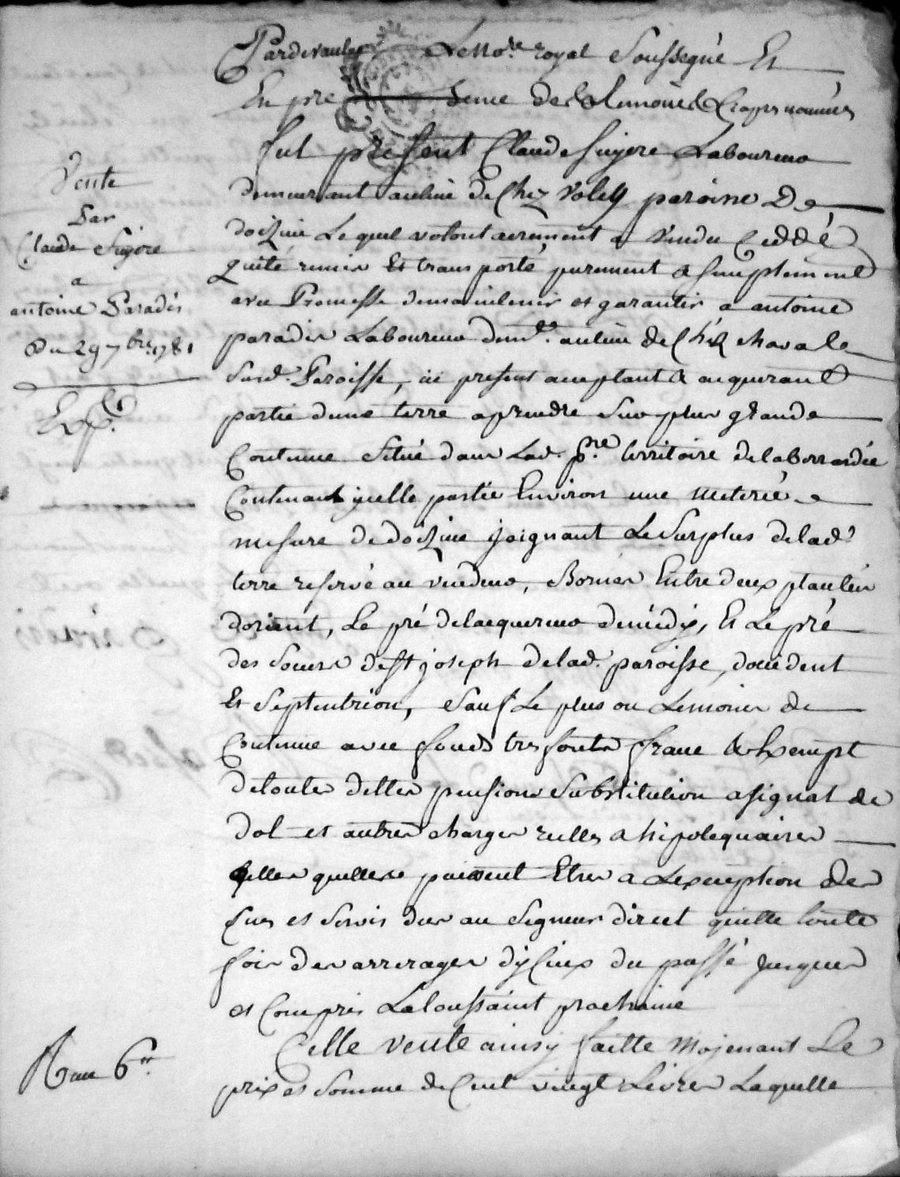 Pardevant Le no.re royal Soussigné Et
En pre sence de temoins cy apres nommés
fut présent Claude figere Laboureur
demeurant au lieu de Chez Voley paroisse De
doizieu Lequel volontairement a vendu Ceddé
quité remis Et transporté purement & simplement
avec Promesse de maintenir et garantir a antoine
paradis Laboureur dem.t au lieu de Chez
Sur d. Paroisse, ici present acceptant & acquerant
partie d'une terre a prendre Sur plus grande
Contenue Situé dans Lad. p.sse territoire de
Contenant icelle partie Environ une meterée
mesure de doizieu joignant Le Surplus de lad.
terre reservé au vendeur, Bornes Entre deux plantées
dorient, Le pré de lacquereur de midy, Et Le pré
des Soeurs de St joseph de lad. paroisse, doccident
Et Septentrion, Sauf Le plus ou Le moins de
Contenue avec fonds tres fonds franc & Exempt
de toutes dettes pensions Substitution assignat de
dot et autres charges réelles & hipotequaires
telles quelles puissent Etre a Lexception des
Cens et Servis dus au Seigneur direct quitte toute
fois des arrerages diceux du passé jusques
et Compris La toussaint prochaine
Cette vente ainsy faitte moyenant Le
prix et Somme de Cent vingt Livres Laquelle
Vente
Par
Claude figere
a
antoine Paradis
Du 29 7bre 1781
Exp.é
R 6